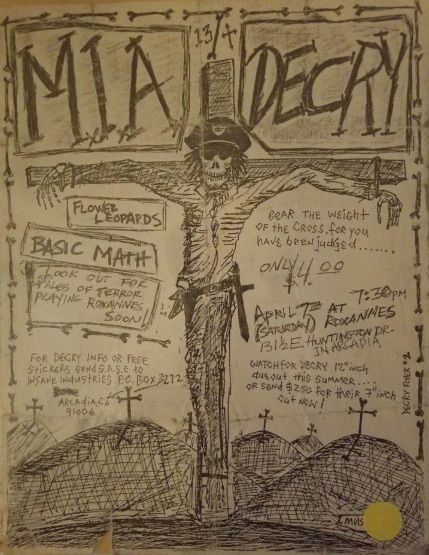 13/4
MIA
DECRY
FLOWER
LEOPARDS
BASIC MATH
LOOK OUT FOR
TALES OF TERROR
PLAYING ROXANNES
SOON!
FOR DECRY INFO OR FREE
STICKERS SEND S.A.S.E TO
INSANE INDUSTRIES P.O. BOX 3272
ARCADIA, CA
91006
BEAR THE WEIGHT
OF THE CROSS, for you
have been judged.......
ONLY $4.00
7:30pm
APRIL 7TH AT
(SATURDAY) ROXANNES
131½ E. HUNTINGTON DR.
IN ARCADIA
WATCH FOR DECRY 12"inch
out this summer....
or send $2.50 for their 7"inch
out now!
DECRY FLIER #2